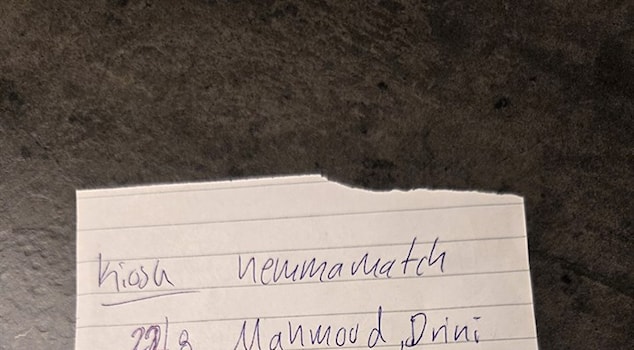 Kiosk hemmamatch
22/8 Mahmoud, Drini